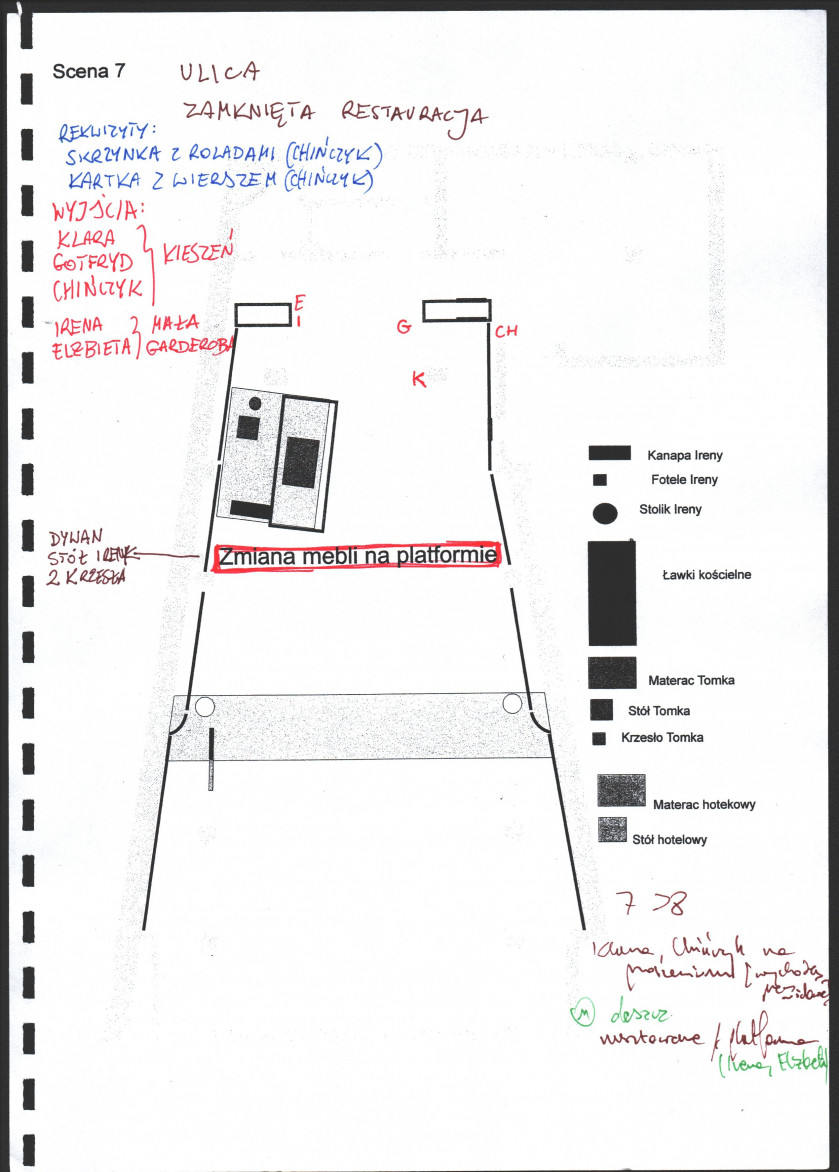 Scena 7 ULICA
ZAMKNIĘTA RESTAURACJA
REKWIZYTY:
SKRZYNKA Z ROLADAMI (CHIŃCZYK)
KARTKA Z WIERSZEM (CHIŃCZYK)
WYJŚCIA:
KLARA
GOTFRYD
CHIŃCZYK
KIESZEŃ
IRENA
ELŻBIETA
MAŁA
GARDEROBA
E
I
G
CH
K
Kanapa Ireny
Fotele Ireny
Stolik Ireny
Ławki kościelne
Materac Tomka
Stół Tomka
Krzesło Tomka
Materac hotekowy
Stół hotelowy
DYWAN
STÓŁ IRENY
2 KRZESŁA
Zmiana mebli na platformie
7 > 8
Chińczyk na
M deszcz
platforma
(Irena, Elżbieta)